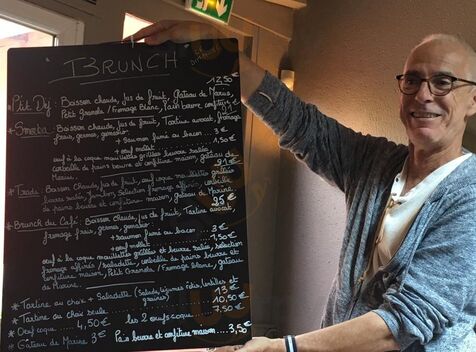 BRUNCH
12,50€
* P'tit Dej : Boisson chaude, jus de fruit, Gâteau de Marine,
Petit Granola / Fromage Blanc, Pain beurre, confiture
* Smorba : Boisson chaude, jus de fruit, Tartine avocat, fromage
frais, germes,
+ saumon fumé ou bacon ... 3 €
+ oeuf mollet ... 1,50€
oeuf à la coque mouillettes grillées beurre salé,
corbeille de pains beurre et confiture maison, gâteau de
Marine.
21 €
* Trada : Boisson chaude, jus de fruit, oeuf coque mouillettes grillées
beurre salé, jambon, Sélection fromage affinés, corbeille
de pains beurre et confiture maison, gâteau de Marine.
25 €
* Brunch du Café : Boisson chaude, jus de fruit, Tartine avocat,
fromage frais, germes,
+ saumon fumé ou bacon ... 3 €
+ oeuf mollet ... 1,50€
oeuf à la coque mouillettes grillées et beurre salé, sélection
fromage affinés, corbeille de pains beurre et
confiture maison, Petit Granola / Fromage blanc, gâteau
de Marine.
* Tartine au choix + Saladette (Salade, légumes rôtis, lentilles et
graines) 13 €
* Tartine au choix seule ... 10,50 €
* Oeuf coque ... 4,50€ les 2 oeufs coque ... 7,50€
* Gâteau de Marine 3 € Pain beurre et confiture maison ... 3,50€